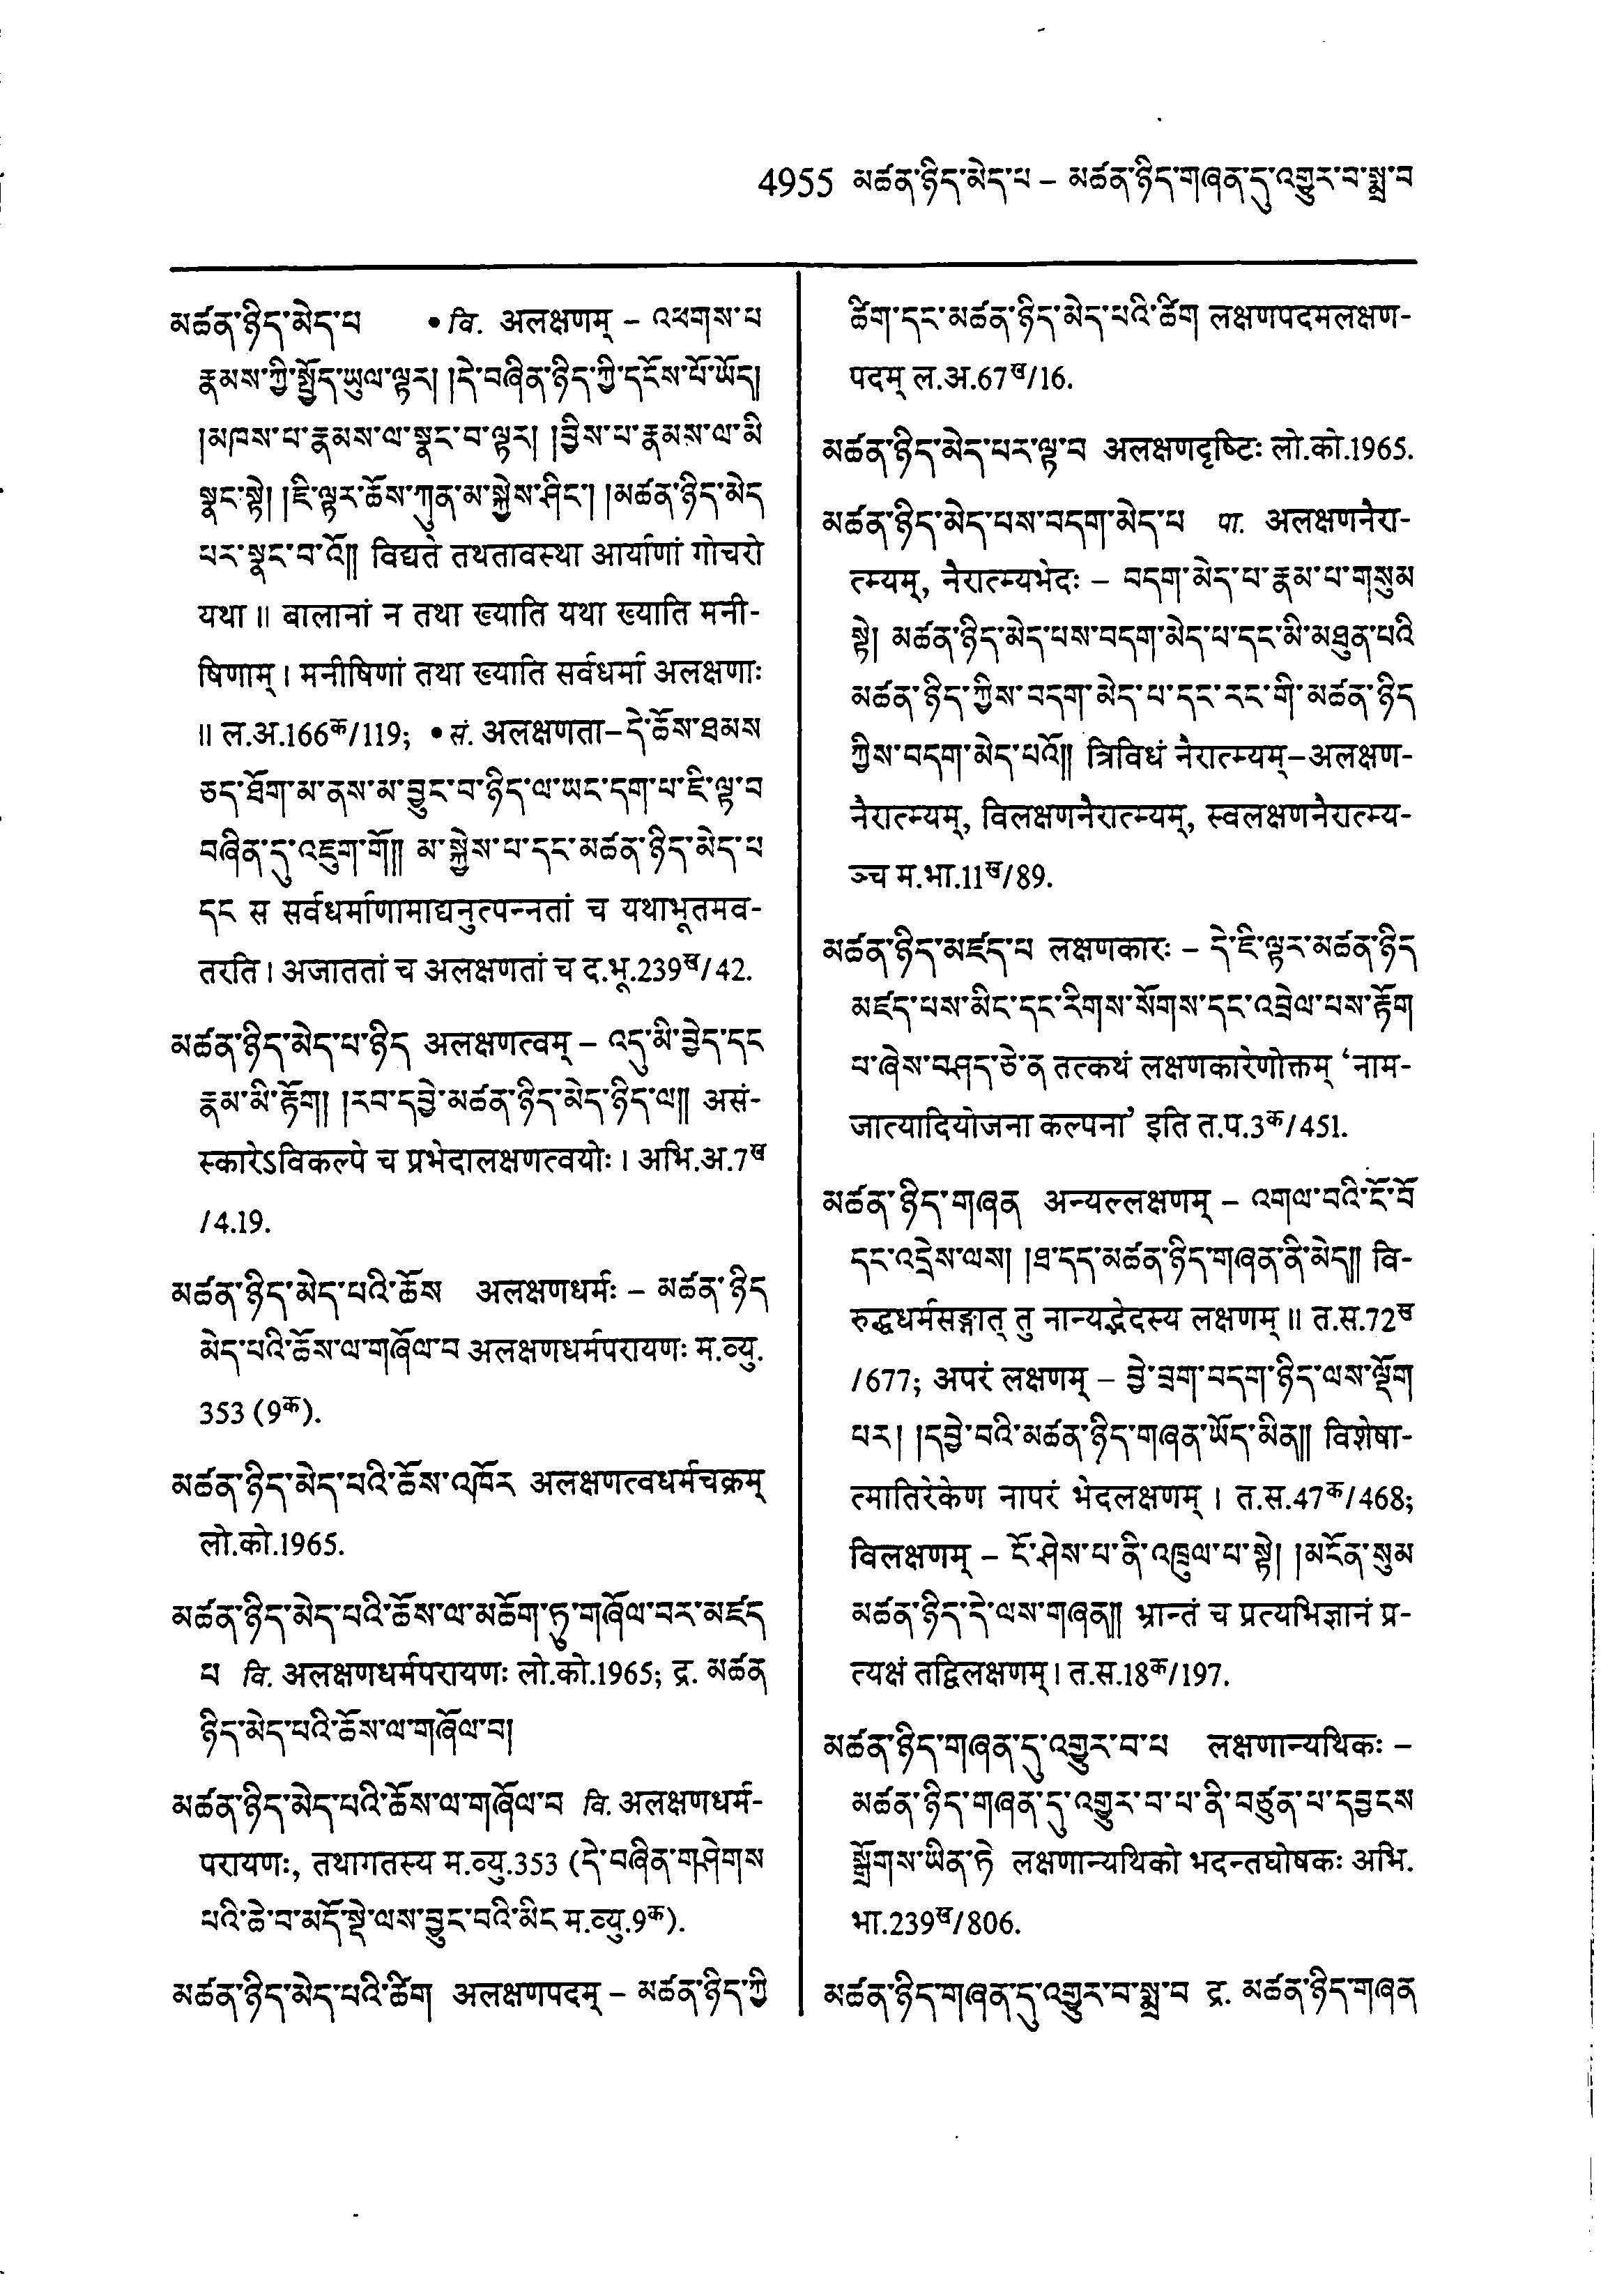 4955 མཚན་ཉིད་མེད་པ – མཚན་ཉིད་གཞན་དུ་འགྱུར་བ་སྨྲ་བ
མཚན་ཉིད་མེད་པ • वि. अलक्षणम् – འཕགས་པ
རྣམས་ཀྱི་སྤྱོད་ཡུལ་ལྟར། །དེ་བཞིན་ཉིད་ཀྱི་དངོས་པོ་ཡོད།
།མཁས་པ་རྣམས་ལ་སྣང་བ་ལྟར། །བྱིས་པ་རྣམས་ལ་མི
སྣང་སྟེ། །ཇི་ལྟར་ཆོས་ཀུན་མ་སྐྱེས་ཤིང་། །མཚན་ཉིད་མེད
པར་སྣང་བ་འོ༎ विद्यते तथतावस्था आर्याणां गोचरो
यथा ॥ बालानां न तथा ख्याति यथा ख्याति मनी-
षिणाम् । मनीषिणां तथा ख्याति सर्वधर्मा अलक्षणाः
॥ ल.अ.166क/119; • सं. अलक्षणता–དེ་ཆོས་ཐམས
ཅད་ཐོག་མ་ནས་མ་བྱུང་བ་ཉིད་ལ་ཡང་དག་པ་ཇི་ལྟ་བ
བཞིན་དུ་འཇུག་གོ༎ མ་སྐྱེས་པ་དང་མཚན་ཉིད་མེད་པ
དང स सर्वधर्माणामाद्यनुत्पन्नतां च यथाभूतमव-
तरति । अजाततां च अलक्षणतां च द.भू.239ख/42.
མཚན་ཉིད་མེད་པ་ཉིད अलक्षणत्वम् – འདུ་མི་བྱེད་དང
རྣམ་མི་རྟོག། །རབ་དབྱེ་མཚན་ཉིད་མེད་ཉིད་ལ༎ असं-
स्कारेऽविकल्पे च प्रभेदालक्षणत्वयोः । अभि.अ.7ख
/4.19.
མཚན་ཉིད་མེད་པའི་ཆོས अलक्षणधर्मः – མཚན་ཉིད
མེད་པའི་ཆོས་ལ་གཞོལ་བ अलक्षणधर्मपरायणः म.व्यु.
353 (9क).
མཚན་ཉིད་མེད་པའི་ཆོས་འཁོར अलक्षणत्वधर्मचक्रम्
लो.को.1965.
མཚན་ཉིད་མེད་པའི་ཆོས་ལ་མཆོག་ཏུ་གཞོལ་བར་མཛད
པ वि. अलक्षणधर्मपरायणः लो.को.1965; द्र. མཚན
ཉིད་མེད་པའི་ཆོས་ལ་གཞོལ་བ།
མཚན་ཉིད་མེད་པའི་ཆོས་ལ་གཞོལ་བ वि. अलक्षणधर्म-
परायणः, तथागतस्य म.व्यु.353 (དེ་བཞིན་གཤེགས
པའི་ཆེ་བ་མདོ་སྡེ་ལས་བྱུང་བའི་མིང म.व्यु.9क).
མཚན་ཉིད་མེད་པའི་ཚིག अलक्षणपदम् – མཚན་ཉིད་ཀྱི
ཚིག་དང་མཚན་ཉིད་མེད་པའི་ཚིག लक्षणपदमलक्षण-
पदम् ल.अ.67ख/16.
མཚན་ཉིད་མེད་པར་ལྟ་བ अलक्षणदृष्टिः लो.को.1965.
མཚན་ཉིད་མེད་པས་བདག་མེད་པ पा. अलक्षणनैरा-
त्म्यम्, नैरात्म्यभेदः – བདག་མེད་པ་རྣམ་པ་གསུམ
སྟེ། མཚན་ཉིད་མེད་པས་བདག་མེད་པ་དང་མི་མཐུན་པའི
མཚན་ཉིད་ཀྱིས་བདག་མེད་པ་དང་རང་གི་མཚན་ཉིད
ཀྱིས་བདག་མེད་པའོ༎ त्रिविधं नैरात्म्यम्–अलक्षण-
नैरात्म्यम्, विलक्षणनैरात्म्यम्, स्वलक्षणनैरात्म्य-
ञ्च म.भा.11ख/89.
མཚན་ཉིད་མཛད་པ लक्षणकारः – དེ་ཇི་ལྟར་མཚན་ཉིད
མཛད་པས་མིང་དང་རིགས་སོགས་དང་འབྲེལ་པས་རྟོག
པ་ཞེས་བཤད་ཅེ་ན तत्कथं लक्षणकारेणोक्तम् ‘नाम-
जात्यादियोजना कल्पना’ इति त.प.3क/451.
མཚན་ཉིད་གཞན अन्यल्लक्षणम् – འགལ་བའི་ངོ་བོ
དང་འདྲེས་ལས། །ཐ་དད་མཚན་ཉིད་གཞན་ནི་མེད༎ वि-
रुद्धधर्मसङ्गात् तु नान्यद्भेदस्य लक्षणम् ॥ त.स.72ख
/677; अपरं लक्षणम् – བྱེ་བྲག་བདག་ཉིད་ལས་ལྡོག
པར། །དབྱེ་བའི་མཚན་ཉིད་གཞན་ཡོད་མིན༎ विशेषा-
त्मातिरेकेण नापरं भेदलक्षणम् । त.स.47क/468;
विलक्षणम् – ངོ་ཤེས་པ་ནི་འཁྲུལ་པ་སྟེ། །མངོན་སུམ
མཚན་ཉིད་དེ་ལས་གཞན༎ भ्रान्तं च प्रत्यभिज्ञानं प्र-
त्यक्षं तद्विलक्षणम् । त.स.18क/197.
མཚན་ཉིད་གཞན་དུ་འགྱུར་བ་པ लक्षणान्यथिकः –
མཚན་ཉིད་གཞན་དུ་འགྱུར་བ་པ་ནི་བཙུན་པ་དབྱངས
སྒྲོགས་ཡིན་ཏེ लक्षणान्यथिको भदन्तघोषकः अभि.
भा.239ख/806.
མཚན་ཉིད་གཞན་དུ་འགྱུར་བ་སྨྲ་བ द्र. མཚན་ཉིད་གཞན